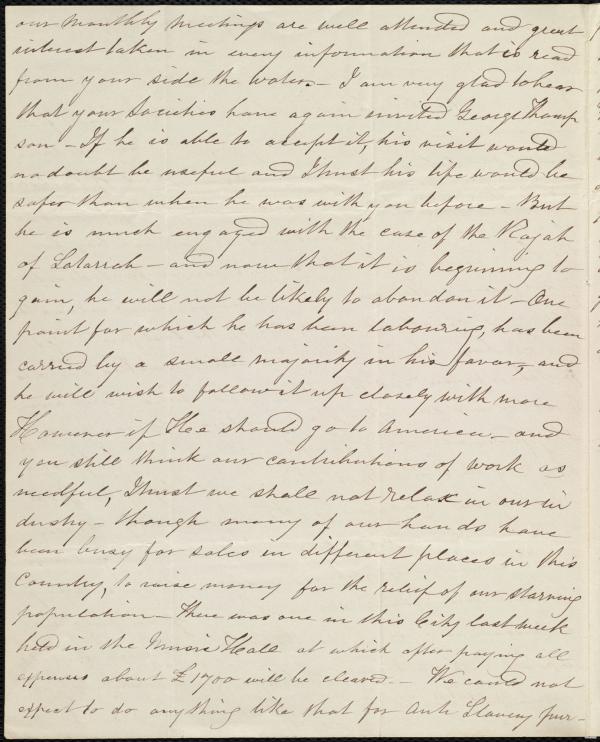 our monthly meetings are well attended and great
interest taken in every information that is read
from your side the water. – I am very glad to hear
that your Societies have again invited George Thomp
son – If he is able to accept it, his visit would
no doubt be useful and I trust his life would be
safer than when he was with you before – But
he is much engaged with the case of the Rajah
of Satarrah – and now that it is beginning to
gain, he will not be likely to abandon it – One
point for which he has been labouring, has been
carried by a small majority in his favor, and
he will wish to follow it up closely with more
However if Hee should go to America – and
you still think our contributions of work as
needful, I trust we shall not relax in our in
dustry – though many of our hands have
been busy for sales in different places in this
Country, to raise money for the relief of our starving
population – There was one in this City last week
held in the Music Hall at which after paying all
expenses about £1700 will be cleared. – We could not
expect to do anything like that for Anti Slavery pur-